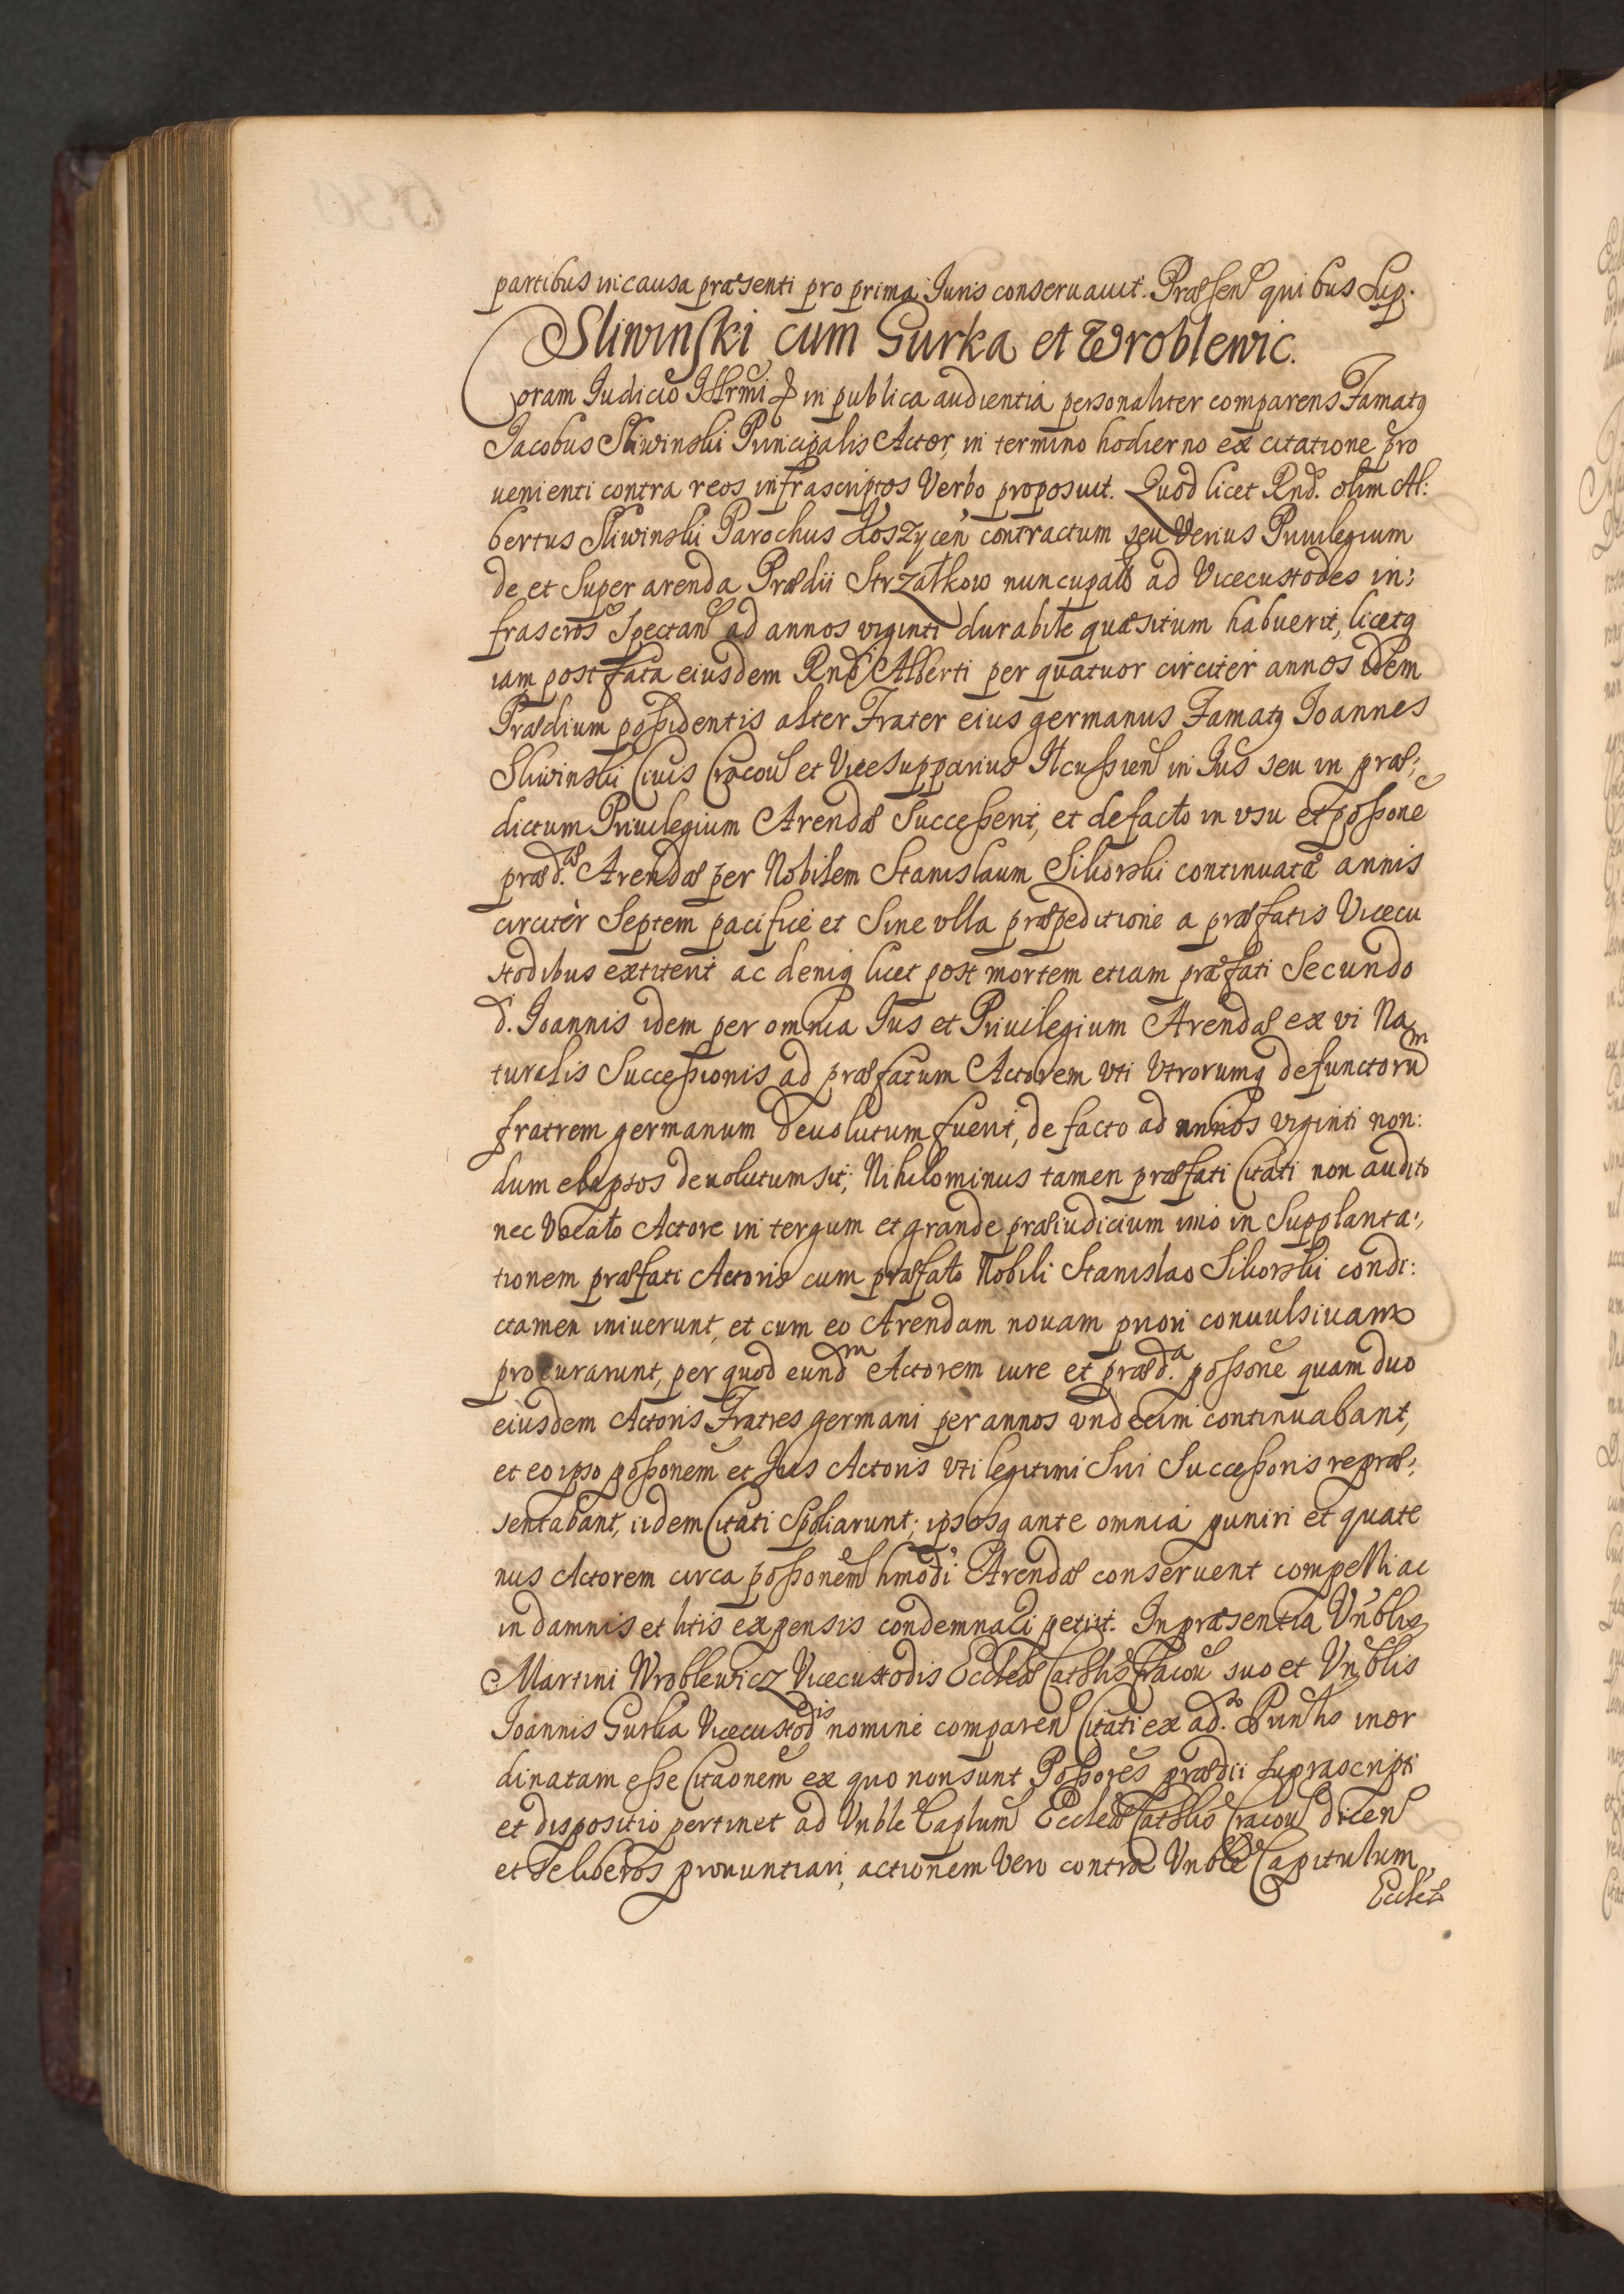 partibus in causa præsenti pro prima Iuris conseruauit. Præsen͠ quibus Sup.
Sliwinski cum Gurka et Wroblewic.
Coram Iudicio Illrm̃i & in publica audientia personaliter comparens Famatꝯ
Jacobus Sliwinski Principalis Actor, in termino hodierno ex citatione pro
uenienti contra reos infrascriptos Verbo proposuit. Quod licet Rnd. olim Al:
bertus Sliwinski Parochus Koszycen͠ contractum seu Verius Priuilegium
de et super arenda Prædii Strzałkow nuncupati ad Vicecustodes in:
frascr̃os Spectan͠ ad annos viginti durabile quæsitum habuerit, licetq
iam post fata eiusdem Rnd͠i Alberti per quatuor circiter annos idem
Prædium possidentis alter Frater eius germanus Famatꝯ Joannes
Sliwinski Ciuis Cracou͠ et Vicesupparius Ilcussien͠ in Jus seu in præ:
dictum Priuilegium Arendæ Successerit, et de facto in vsu et possone͠
præd.æ Arendæ per Nobilem Stanislaum Sikorski continuatæ annis
circitèr Septem pacifice et Sine vlla præpeditione a præfatis Vicecu
stodibus extiterit ac deniq licet post mortem etiam præfati Secundo
d. Joannis idem per omnia Jus et Priuilegium Arendæ ex vi Na
turalis Successionis ad præfatum Actorem vti Vtrorumq defunctorum
fratrem germanum deuolutum fuerit, de facto ad annos viginti non:
dum elapsos deuolutum sit; Nihilominus tamen præfati Citati non audito
nec Vocato Actore in tergum et grande præiudicium imo in Supplanta:
tionem præfati Actoris cum præfato Nobili Stanislao Sikorski condi:
ctamen iniuerunt, et cum eo Arendam nouam priori conuulsiuam
procurarunt, per quod eundm Actorem iure et præd.a possone͠ quam duo
eiusdem Actoris Fratres germani per annos vndecim continuabant,
et eo ipso possonem͠ et Jus Actoris vti legitimi Sui Successoris repræ:
sentabant, iidem Citati Spoliarunt; ipsosq ante omnia puniri et quate
nus Actorem circa possonem͠ hmodi Arendæ conseruent compelli ac
in damnis et litis expensis condemnari petiit. In præsentia Vn͠blis
Martini Wroblewicz Vicecustodis Eccleæ Cathlis Cracou͠ suo et Vn͠blis
Joannis Gurka Vicecustodis nomine comparen͠ Citati ex ad.o inor
dinatam esse Citaonem͠ ex quo non sunt Possores͠ prædii suprascripti
et dispositio pertinet ad Vnble Caplum͠ Eccleæ Cathlis Cracou͠ dicen͠
et se liberos pronuntiari, actionem Vero contra Vnble Capitulum
Eccleæ